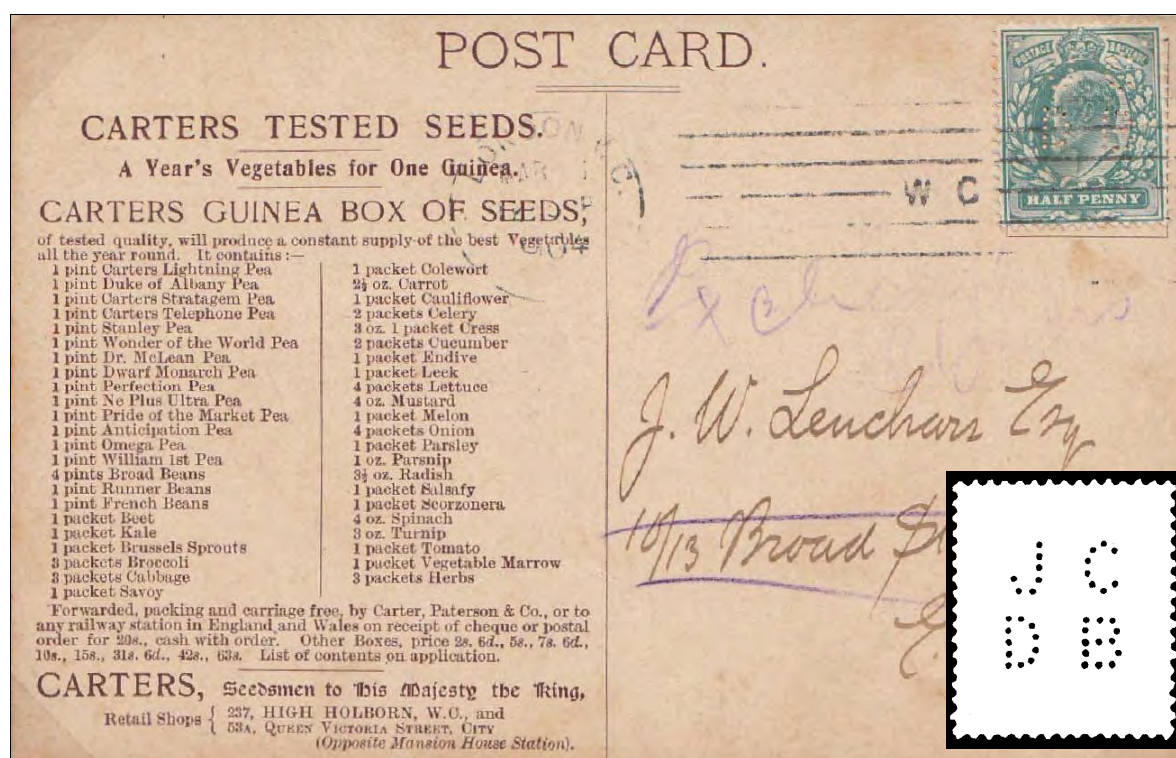 POST CARD.
CARTERS TESTED SEEDS.
A Year's Vegetables for One Guinea.
CARTERS GUINEA BOX OF SEEDS,
of tested quality, will produce a constant supply of the best Vegetables
all the year round. It contains :—
1 pint Carters Lightning Pea
1 pint Duke of Albany Pea
1 pint Carters Stratagem Pea
1 pint Carters Telephone Pea
1 pint Stanley Pea
1 pint Wonder of the World Pea
1 pint Dr. McLean Pea
1 pint Dwarf Monarch Pea
1 pint Perfection Pea
1 pint Ne Plus Ultra Pea
1 pint Pride of the Market Pea
1 pint Anticipation Pea
1 pint Omega Pea
1 pint William 1st Pea
4 pints Broad Beans
1 pint Runner Beans
1 pint French Beans
1 packet Beet
1 packet Kale
1 packet Brussels Sprouts
3 packets Broccoli
3 packets Cabbage
1 packet Savoy
1 packet Colewort
2½ oz. Carrot
1 packet Cauliflower
2 packets Celery
3 oz. 1 packet Cress
2 packets Cucumber
1 packet Endive
1 packet Leek
4 packets Lettuce
4 oz. Mustard
1 packet Melon
4 packets Onion
1 packet Parsley
1 oz. Parsnip
3½ oz. Radish
1 packet Salsafy
1 packet Scorzonera
4 oz. Spinach
3 oz. Turnip
1 packet Tomato
1 packet Vegetable Marrow
3 packets Herbs
Forwarded, packing and carriage free, by Carter, Paterson & Co., or to
any railway station in England and Wales on receipt of cheque or postal
order for 20s., cash with order. Other Boxes, price 2s. 6d., 5s., 7s. 6d.,
10s., 15s., 31s. 6d., 42s., 63s. List of contents on application.
CARTERS, Seedsmen to His Majesty the King,
Retail Shops { 237, HIGH HOLBORN, W.C., and
53A, QUEEN VICTORIA STREET, CITY
(Opposite Mansion House Station).
LONDON W.C.
MAR
POSTAGE REVENUE
HALF PENNY
W C
J. W. Esq
10/13 Broad
J C
D B